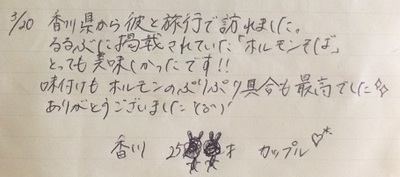 3/20 香川県から彼と旅行で訪れました。
るるぶに掲載されていた「ホルモンそば」
とっても美味しかったです!!
味付けも ホルモンのぷりぷり具合も最高でした☆
ありがとうございました(^^)/
香川 25才 カップル♡